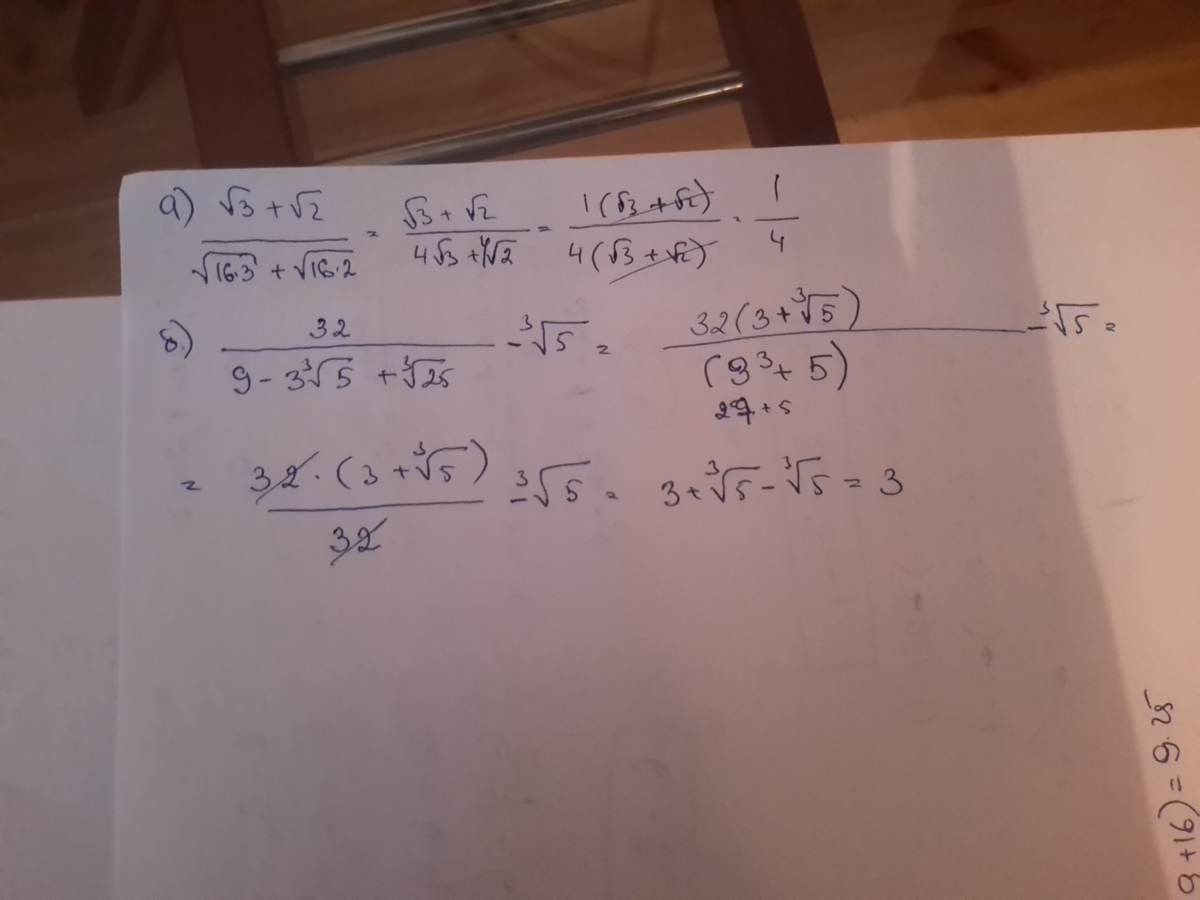 а) (√3 + √2)/(√16·3 + √16·2) = (√3 + √2)/(4√3 + 4√2) = 1(√3 + √2)/4(√3 + √2) = 1/4
б.) 32/(9 - 3∛5 + ∛25) - ∛5 = 32(3 + ∛5)/(3³ + 5) - ∛5 =
27 + 5
= 32·(3 + ∛5)/32 - ∛5 = 3 + ∛5 - ∛5 = 3
9 + 16) = 9.25